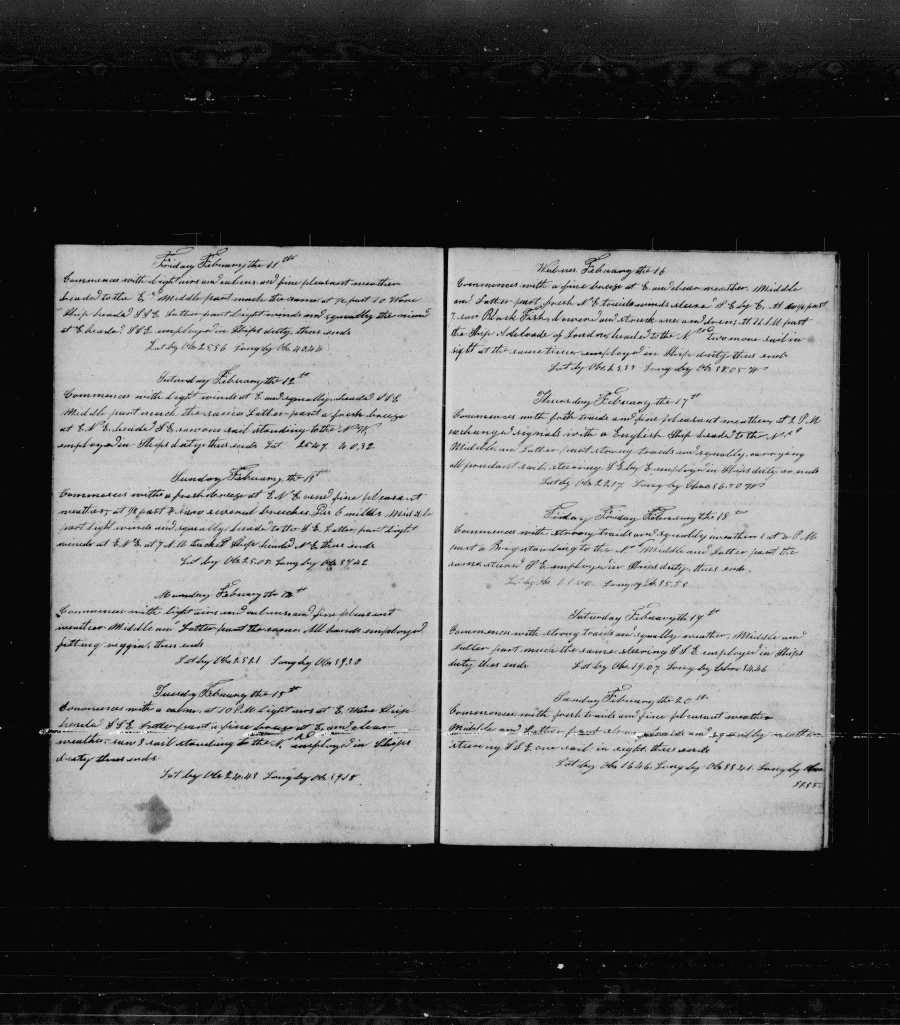 Friday February the 11th
Commences with light airs and calms and fine pleasant weather
headed to the E Middle part much the same at ½ past 10 Wore
Ship headed S S E Latter part light winds and squally the wind
at E headed S S E employed in Ships duty thus ends
Lat by Obs 25 56 Long by Obs 40 44
Saturday February the 12th
Commences with light winds at E and squally headed S S E
Middle part much the same Latter part a fresh breeze
at E N E headed S E saw one sail standing to the N W
employed in Ships duty thus ends Lat 25 47 40 32
Sunday February the 13
Commences with a fresh breeze at E N E and fine pleasant
weather, at ½ past 5 saw several breeches Dis 6 milds Middle
part light winds and squally heade to the S E Latter part light
winds at E N E at 7 A M tacked Ship headed N E thus ends
Lat by Obs 25.05 Long by Obs 39 42
Munday February the 14
Commences with light airs and calms and fine pleasant
weather Middle and Latter part the same All hands employed
fitting riggin, thus ends
Lat by Obs 25 21 Long by Obs 39 30
Tuesday February the 15th
Commences with a calm, at 10 P.M. light airs at E. Wore Ship
headed S S E Latter part a fine breeze at E and clear
weather saw 1 sail standing to the N employed in Ships
duty thus ends
Lat by Obs 24.48 Long by Obs 39 18
February the 16
Commences with a fine breeze at E and clear weather. Middle
and Latter part fresh N E traidswinds steered S E by E. At past
7 saw Black Fish, lowered and struck one and drew. At 11 A M past
the Ship Adelaide of London, headed to the N two more sail in
sight at the same time employed in Ship duty thus ends
Lat by Obs 23 33 Long by Obs 38.05
Thursday February the 17th
Commences with fresh traids and fine pleasant weather, at 2 P.M
exchanged signals with a English Ship headed to the
Middle and Latter part strong traids and squally, carrying
all prudent sail steering S E by E employed in Ships duty so ends
Lat by Obs 22 17. Long by Obs 36.50
Friday Friday February the 18
Commences with strong traids and squally weather at 2 P.M
past a Brig standing to the N Middle and Latter part the
same steered S E employed in Ships duty, thus ends,
Lat by Obs 21 00. Long by Obs 35.50
Saturday February the 19th
Commences with strong traids and squally weather, Middle and
Latter part much the same steering S S E employed in Ships
duty thus ends Lat by Obs 19.07. Long by 34.46
Sunday February the 20th
Commences with fresh traids and fine pleasant weather
Middle and Latter part strong traids and squally weather
steering S S E one sail in sight, thus ends
Lat by Obs 16 46. Long by Obs 33 41. Long by